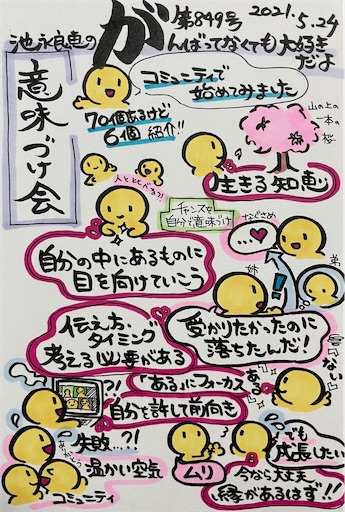 第849号 2021.5.24
池永良恵の
がんばってなくても大好き
だよ
意味づけ会
コミュニティで
始めてみました
70個あるけど
6個 紹介!!
山の上の
一本の
桜
生きる知恵
人と比べる?!
チャンスを
自分で意味づけ
なぐさめ
…♥
自分の中にあるものに
目を向けていこう
姉
弟
!
伝え方、
タイミング
考える必要がある
受かりたかったのに
落ちたんだ!
「ない」
ある
?!
「ある」にフォーカス
自分を許して前向き
失敗…?!
温かい空気
コミュニティ
でも
成長したい
ムリ
今なら大丈夫
縁があるはず!!